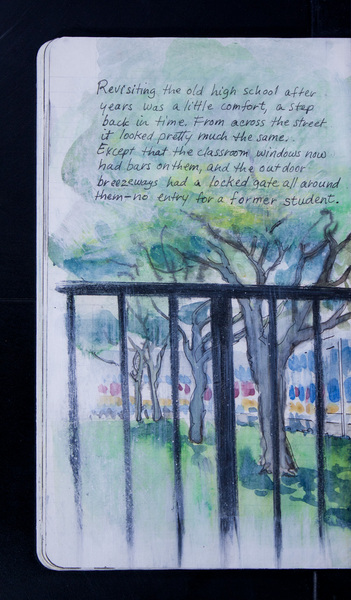 Revisiting the old high school after
years was a little comfort, a step
back in time. From across the street
it looked pretty much the same.
Except that the classroom windows now
had bars on them, and the outdoor
breezeways had a locked gate all around
them—no entry for a former student.